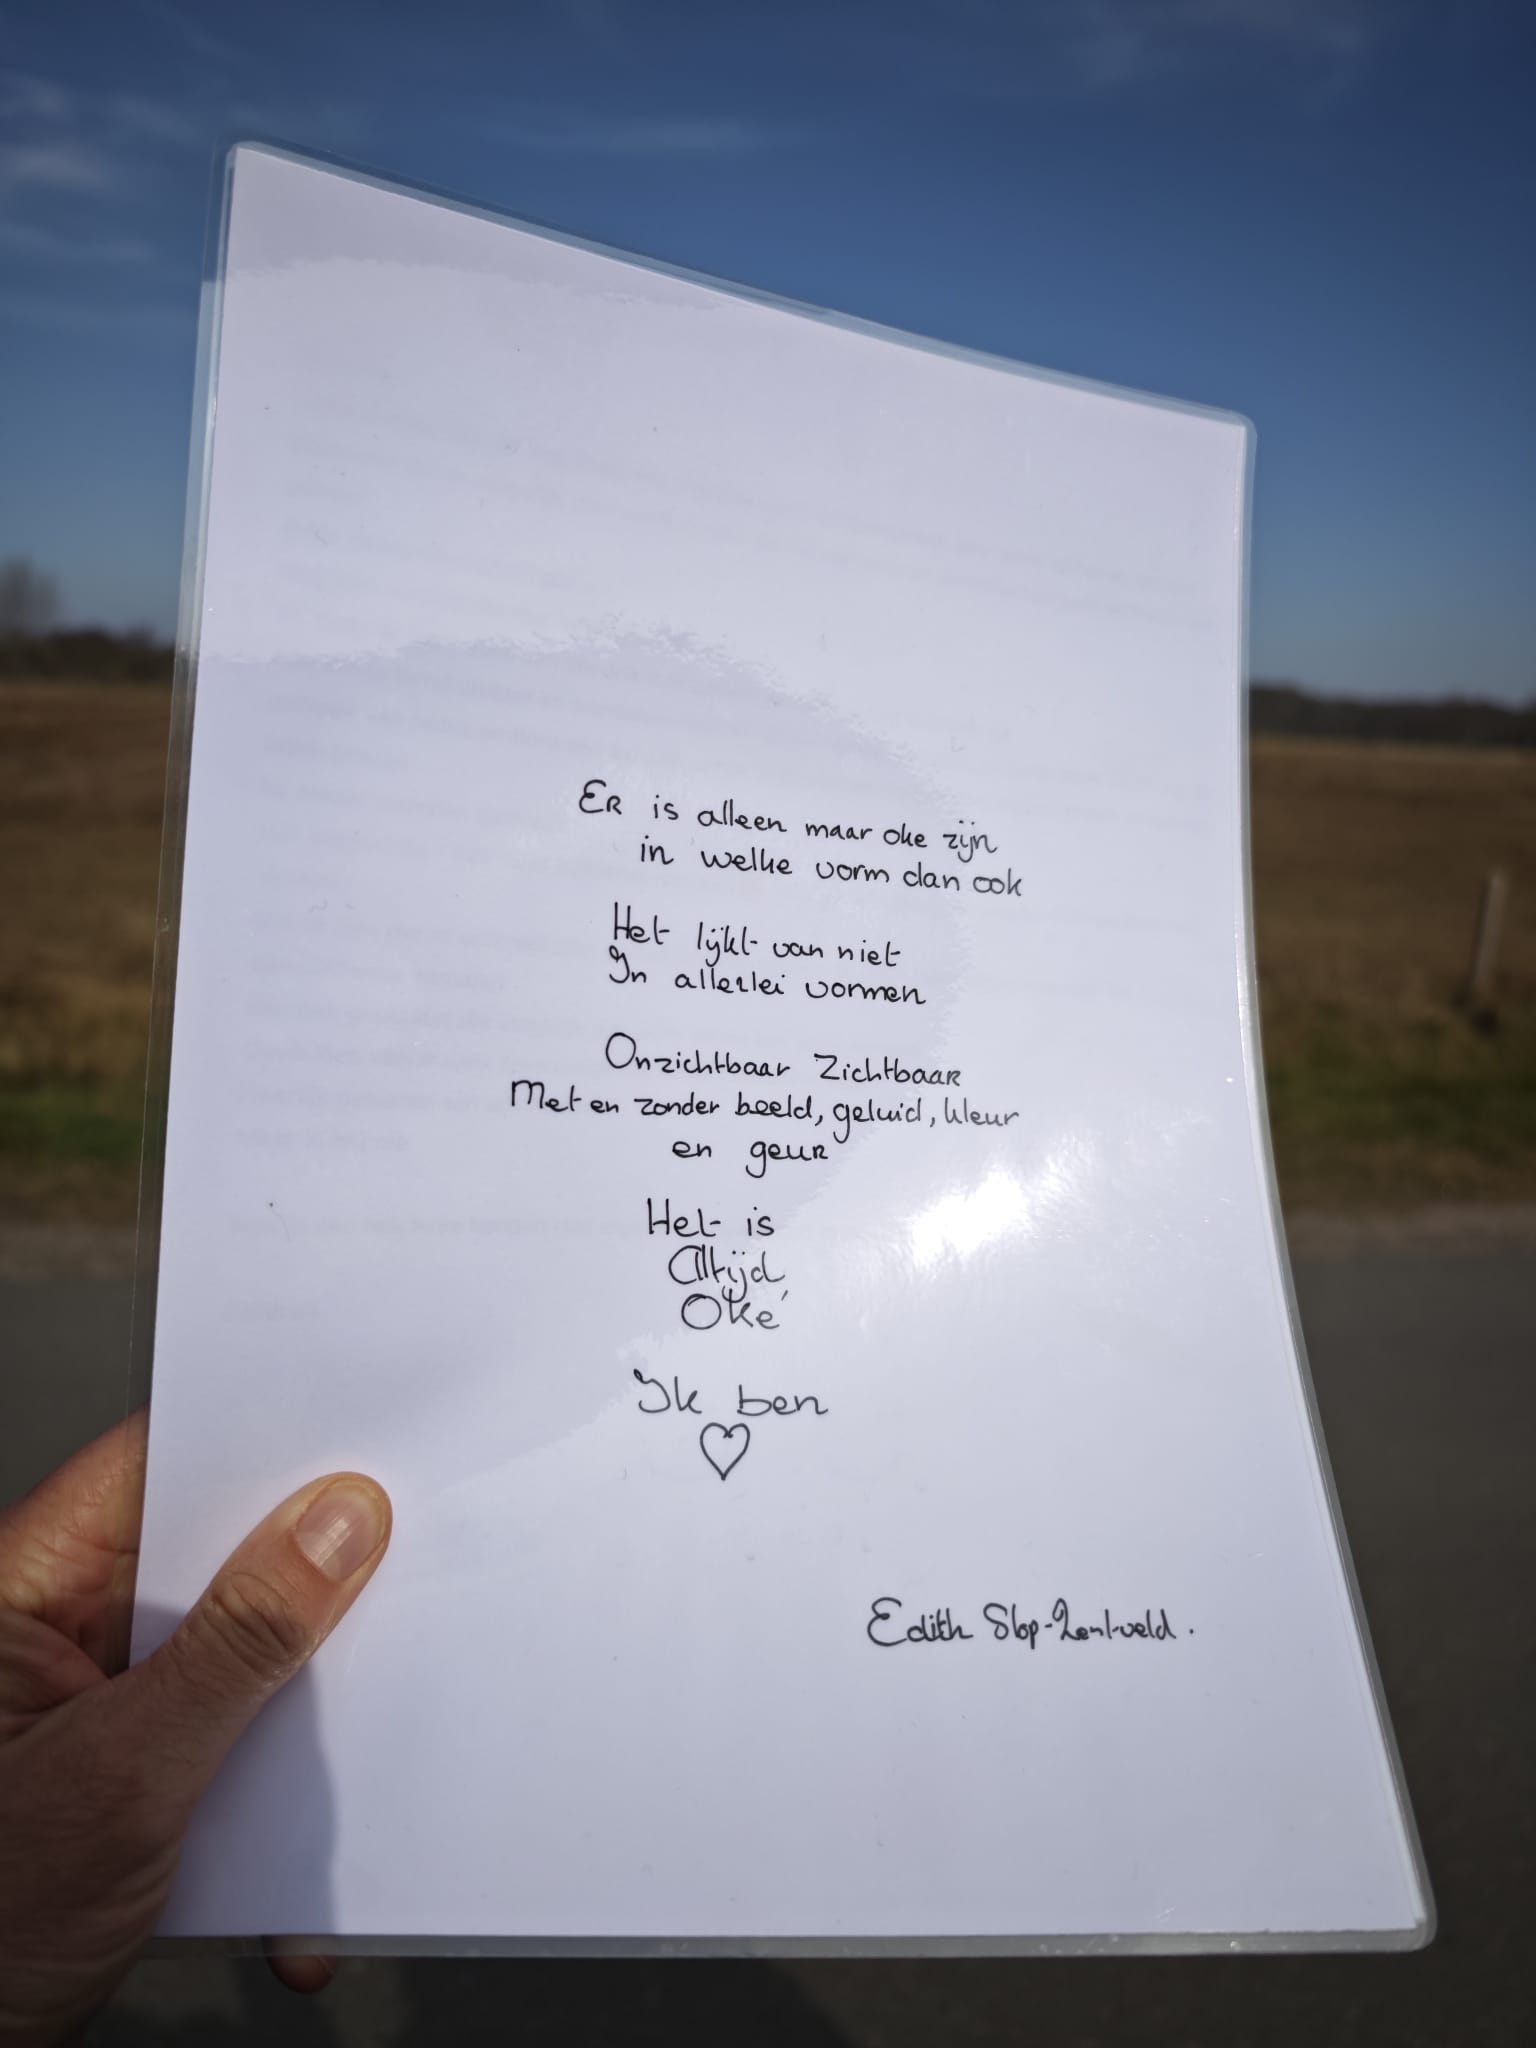 Er is alleen maar oke zijn
in welke vorm dan ook
Het lijkt van niet
In allerlei vormen
Onzichtbaar Zichtbaar
Met en zonder beeld, geluid, kleur
en geur
Het is
Altijd
Oké
Ik ben
Edith Slop-